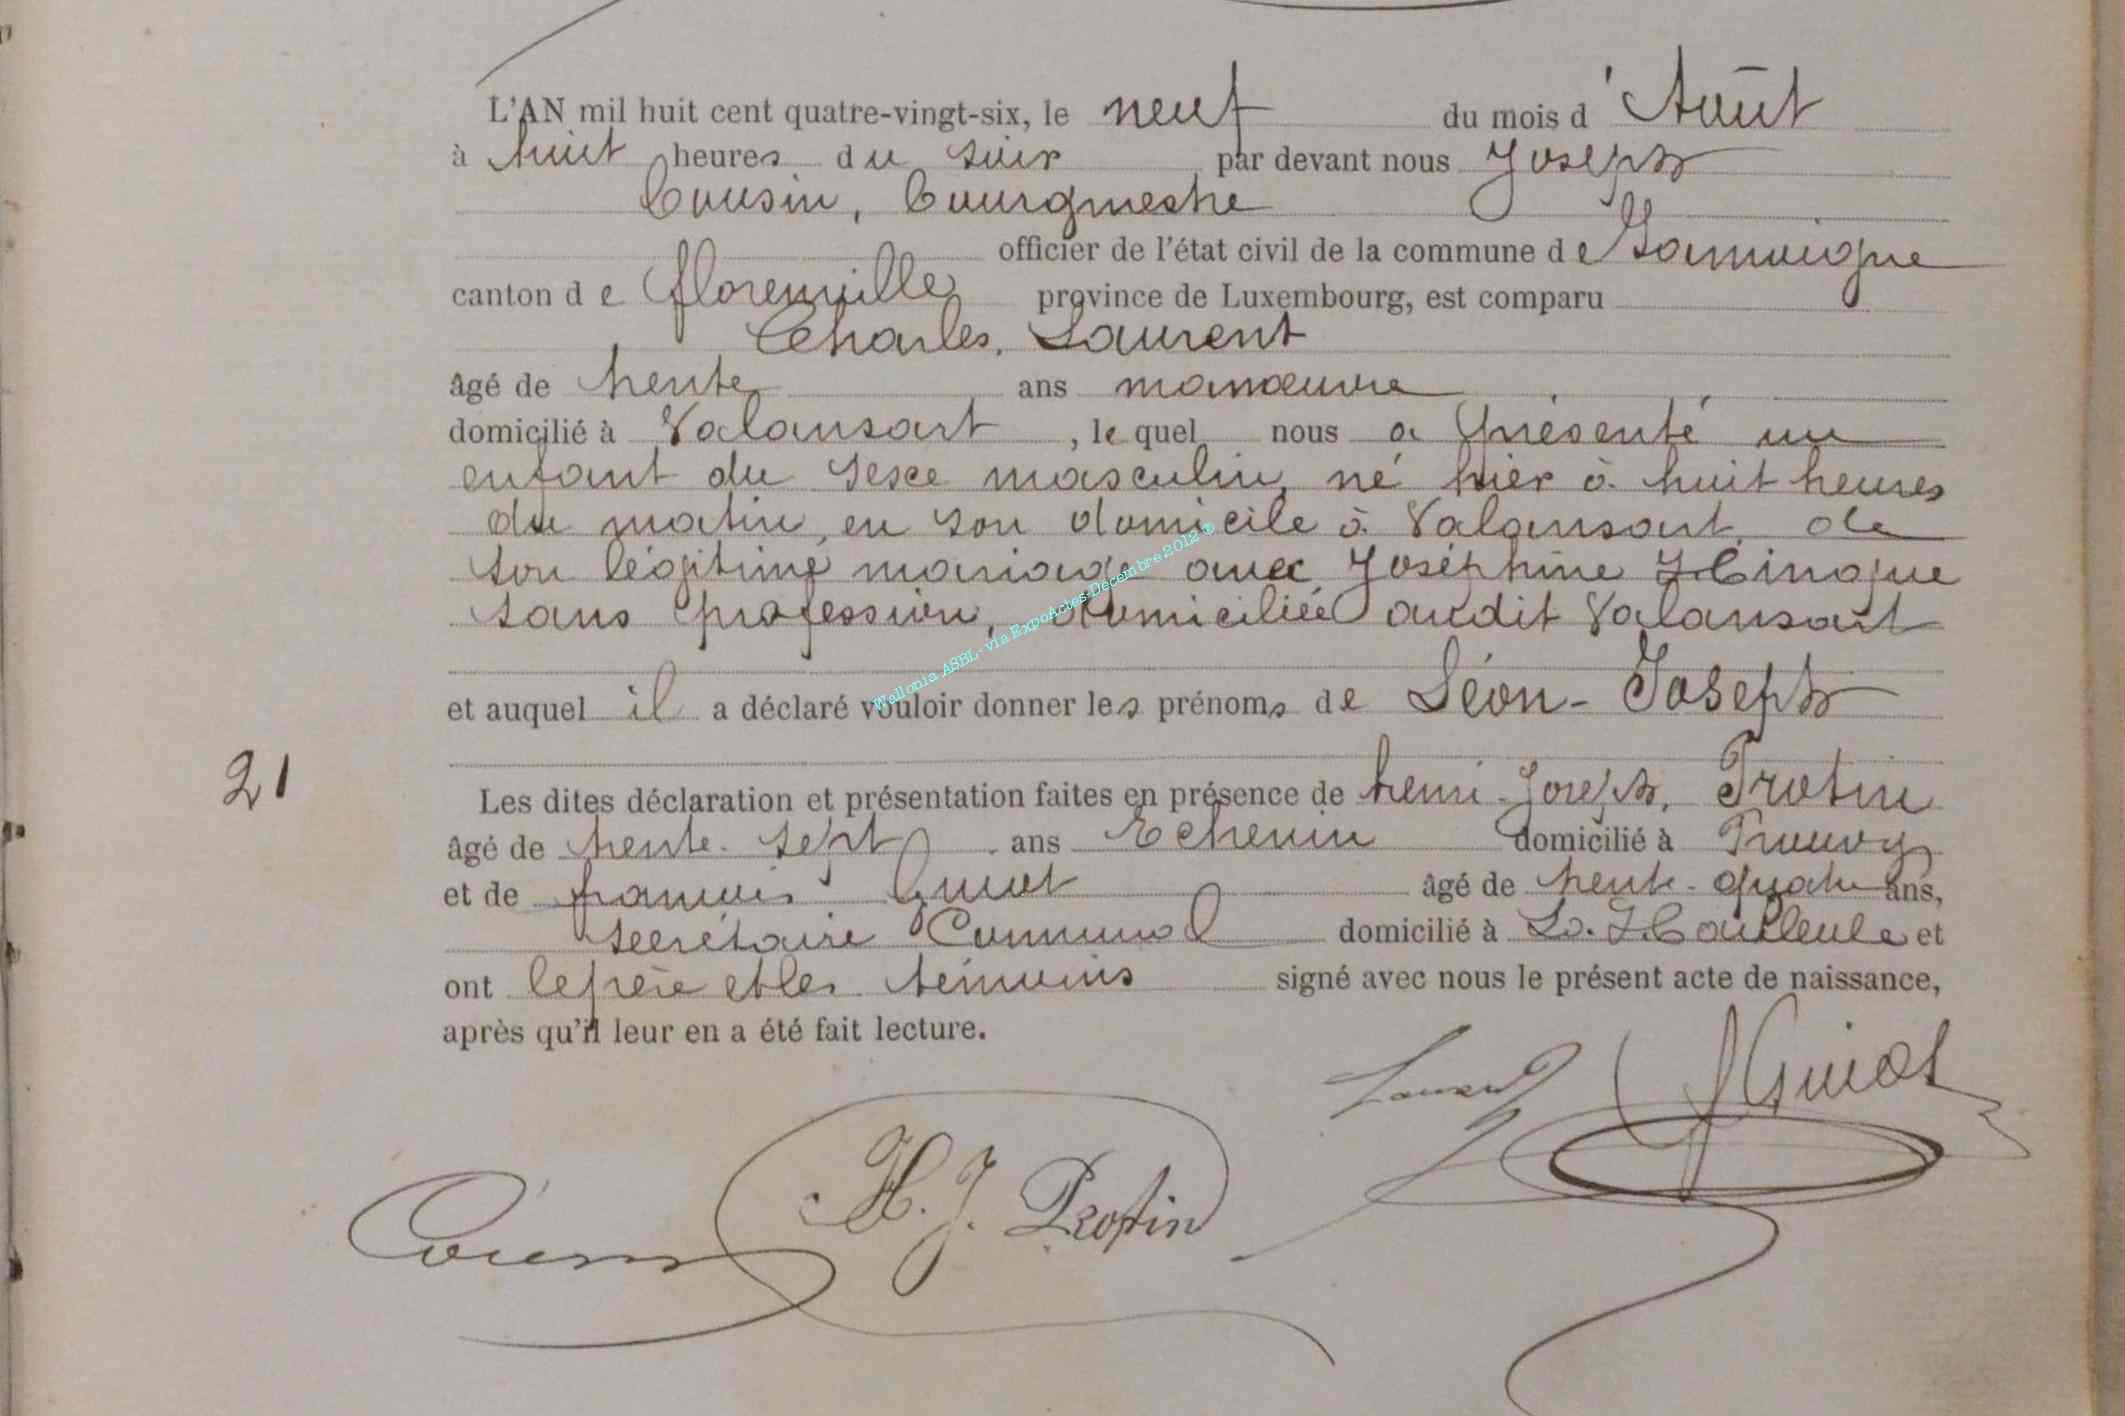 L'AN mil huit cent quatre-vingt-six, le neuf du mois d'Août
à huit heures du soir par devant nous Joseph
Cousin, bourgmestre
officier de l'état civil de la commune de Jamoigne
canton de florenville province de Luxembourg, est comparu
Charles, Laurent
âgé de trente ans manœuvre
domicilié à Valansart, lequel nous a présenté un
enfant du sexe masculin, né hier à huit heures
du matin, en son domicile à Valansart, de
son légitime mariage avec Joséphine Hinque
sans profession, domiciliée audit Valansart
et auquel il a déclaré vouloir donner les prénoms de Léon-Joseph
21
Les dites déclaration et présentation faites en présence de henri-Joseph, Protin
âgé de trente-sept ans Echevin domicilié à Prouvy
et de françois Guiot âgé de trente-quatre ans,
secrétaire Communal domicilié à La-Hailleule et
ont le père et les témoins signé avec nous le présent acte de naissance,
après qu'il leur en a été fait lecture.
Laurent
Guiot
H. J. Protin
Cousin
Wallonia ASBL - via ExpoActes-Décembre 2012 ©